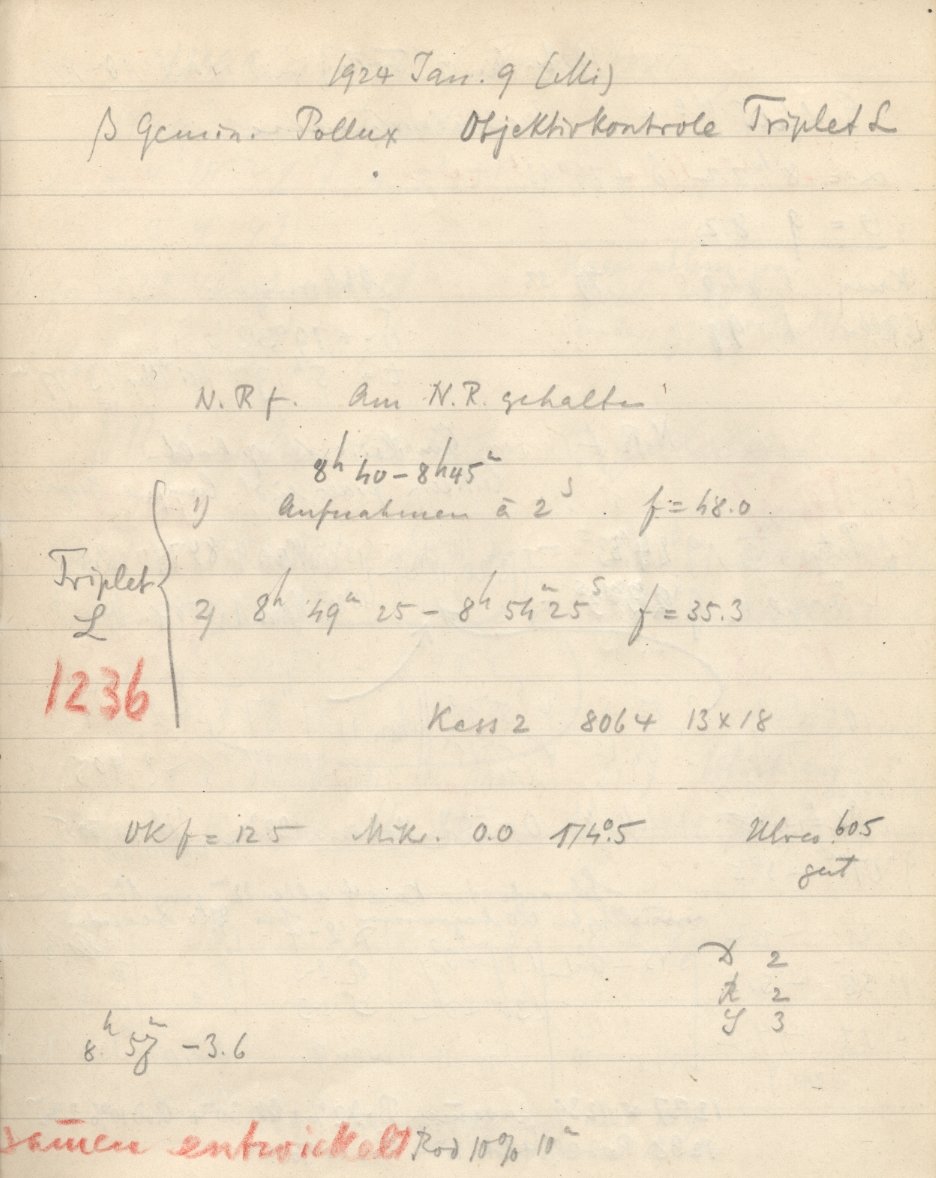 1924 Jan. 9 (Mi)
β Gemin. Pollux Objektivkontrole Triplet L
N.R f. Am N.R. gehalten
8h 40 – 8h 45m
1) Aufnahmen à 2s. f = 48.0
Triplet L
2) 8h 49m 25 – 8h 54m 25s f = 35.3
1236
Kass 2 8064 13 x 18
UK f = 12 5 Mikr. 0.0 174°.5 Ulreo. 605
gut
D 2
R 2
S 3
8h 57m – 3.6
entwickelt Rod 10% 10m